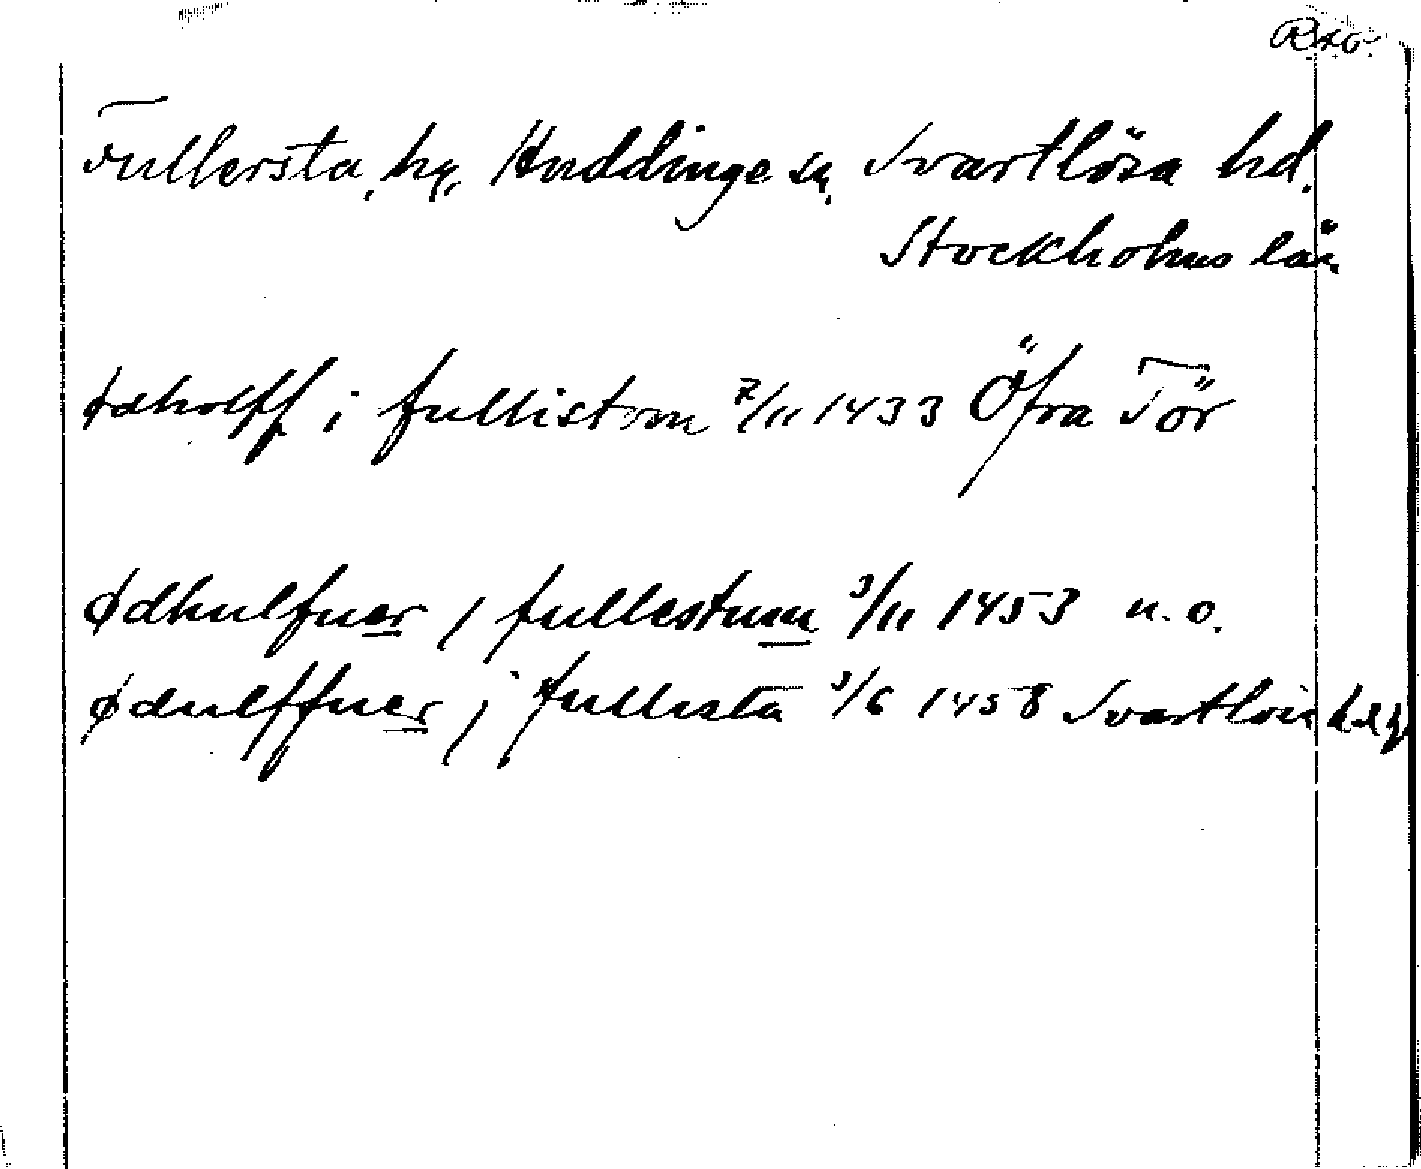 Fullersta, by, Huddinge sn, Svartlösa hd.
Stockholms län
ødholff i fullistom 7/11 1433 Öfra Tör
ødhulfuer j fullestum 3/11 1453 u. o.
ødulffuer j fullista 3/6 1458 Svartlösa